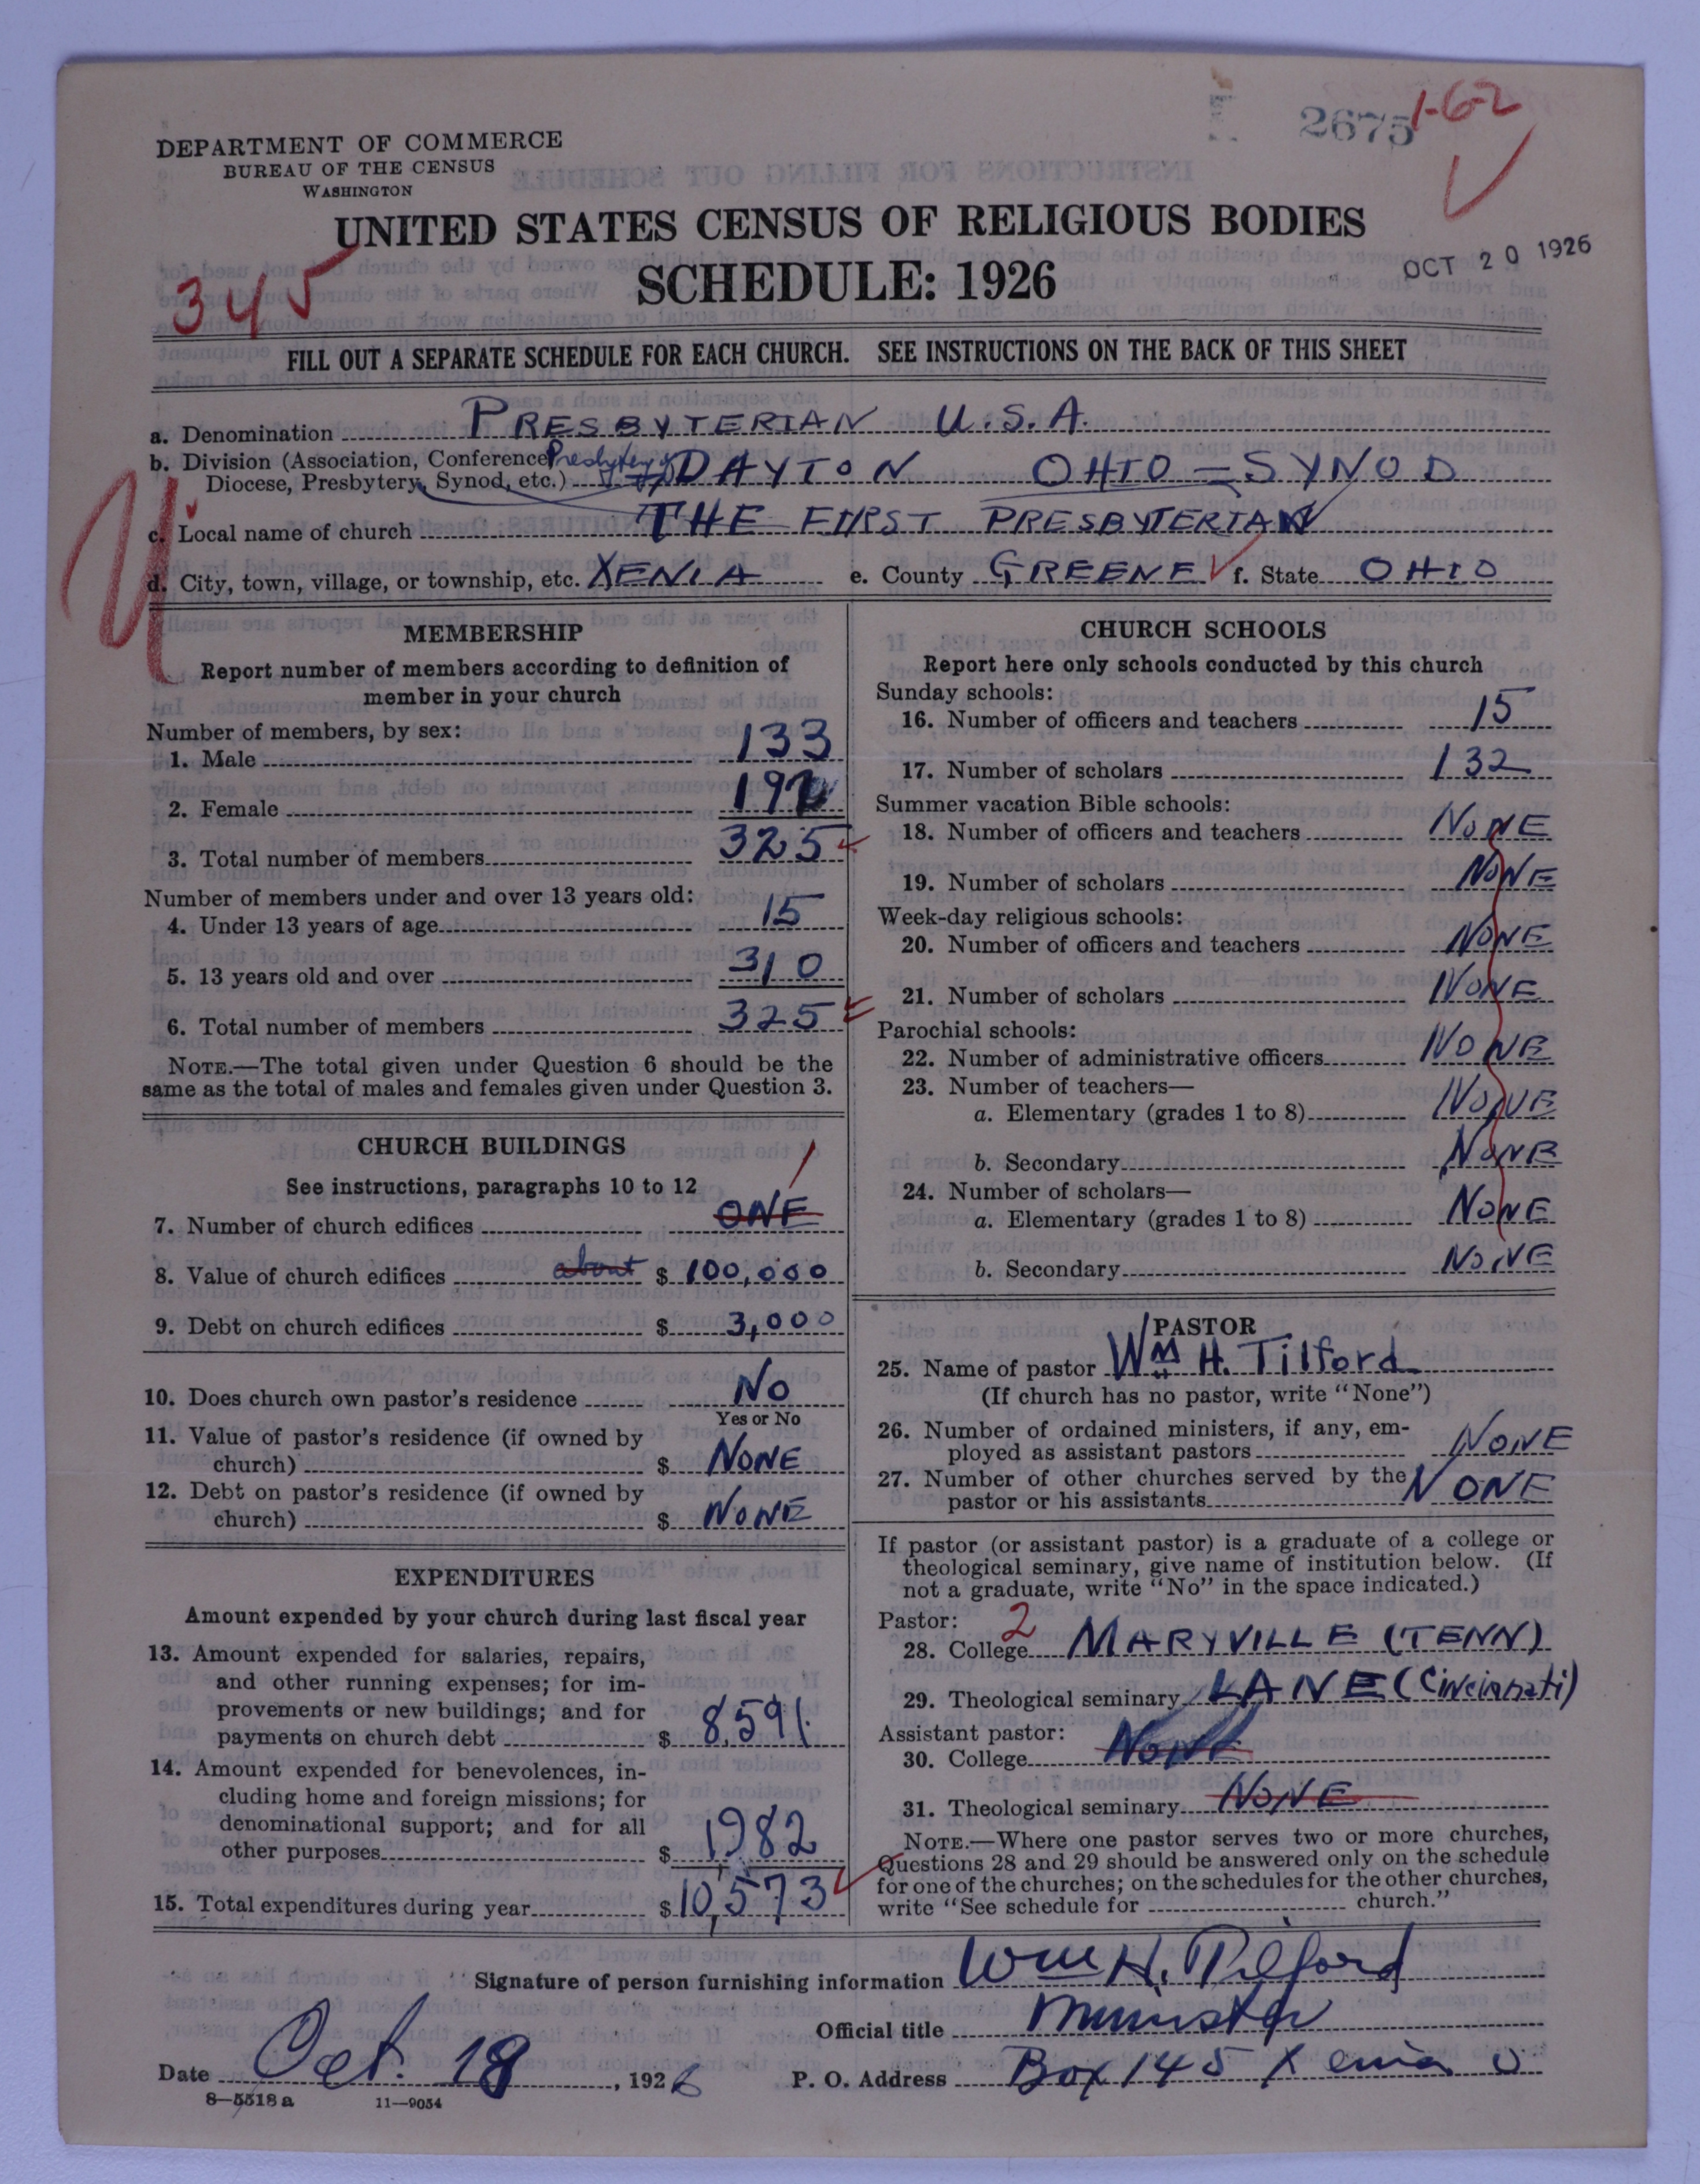 2675 1-6-2
DEPARTMENT OF COMMERCE
BUREAU OF THE CENSUS
WASHINGTON
UNITED STATES CENSUS OF RELIGIOUS BODIES
SCHEDULE: 1926
OCT 20 1926
345
FILL OUT A SEPARATE SCHEDULE FOR EACH CHURCH. SEE INSTRUCTIONS ON THE BACK OF THIS SHEET
a. Denomination PRESBYTERIAN U.S.A.
b. Division (Association, Conference, Presbytery of
Diocese, Presbytery, Synod, etc.) DAYTON OHIO = SYNOD
c. Local name of church THE FIRST PRESBYTERIAN
d. City, town, village, or township, etc. XENIA e. County GREENE f. State OHIO
MEMBERSHIP
Report number of members according to definition of
member in your church
Number of members, by sex:
1. Male 133
2. Female 192
3. Total number of members 325
Number of members under and over 13 years old:
4. Under 13 years of age 15
5. 13 years old and over 310
6. Total number of members 325
NOTE.—The total given under Question 6 should be the
same as the total of males and females given under Question 3.
CHURCH BUILDINGS
See instructions, paragraphs 10 to 12
1
7. Number of church edifices ONE
8. Value of church edifices about $ 100,000
9. Debt on church edifices $ 3,000
10. Does church own pastor's residence No
Yes or No
11. Value of pastor's residence (if owned by
church) $ NONE
12. Debt on pastor's residence (if owned by
church) $ NONE
EXPENDITURES
Amount expended by your church during last fiscal year
13. Amount expended for salaries, repairs,
and other running expenses; for im-
provements or new buildings; and for
payments on church debt $ 8,591.
14. Amount expended for benevolences, in-
cluding home and foreign missions; for
denominational support; and for all
other purposes $ 1982
15. Total expenditures during year $ 10,573
CHURCH SCHOOLS
Report here only schools conducted by this church
Sunday schools:
16. Number of officers and teachers 15
17. Number of scholars 132
Summer vacation Bible schools:
18. Number of officers and teachers NONE
19. Number of scholars NONE
Week-day religious schools:
20. Number of officers and teachers NONE
21. Number of scholars NONE
Parochial schools:
22. Number of administrative officers NONE
23. Number of teachers—
a. Elementary (grades 1 to 8) NONE
b. Secondary NONE
24. Number of scholars—
a. Elementary (grades 1 to 8) NONE
b. Secondary NONE
PASTOR
25. Name of pastor Wm H. Tilford
(If church has no pastor, write "None")
26. Number of ordained ministers, if any, em-
ployed as assistant pastors NONE
27. Number of other churches served by the
pastor or his assistants NONE
If pastor (or assistant pastor) is a graduate of a college or
theological seminary, give name of institution below. (If
not a graduate, write "No" in the space indicated.)
Pastor: 2
28. College MARYVILLE (TENN)
29. Theological seminary LANE (Cincinnati)
Assistant pastor:
30. College NONE
31. Theological seminary NONE
NOTE.—Where one pastor serves two or more churches,
Questions 28 and 29 should be answered only on the schedule
for one of the churches; on the schedules for the other churches,
write "See schedule for church."
Signature of person furnishing information Wm H. Tilford
Official title Minister
Date Oct. 18, 1926 P. O. Address Box 145 Xenia O
8—5518 a 11—9054